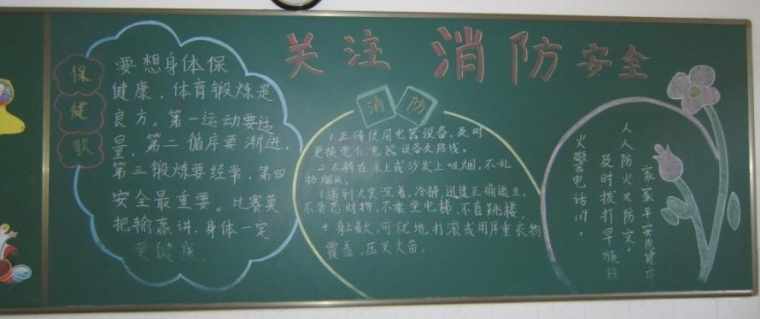 关注消防安全
保健歌
要想身体保
健康，体育锻炼是
良方。第一运动要适
量，第二循序要渐进，
第三锻炼要经常，第四
安全最重要。比赛莫
把输赢讲，身体一定
更健康
消防
1.正确使用电器设备，及时
更换电器设备及路线。
2.不躺在床上或沙发上吸烟，不乱
扔烟头。
3.遇到火灾沉着、冷静，迅速正确逃生，
不贪恋财物，不乘坐电梯，不盲跳楼。
4.身上着火，可就地打滚或用厚重衣物
覆盖，压灭火苗。
家家平安
人人防火又防灾，
及时拨打早
火警电话119，